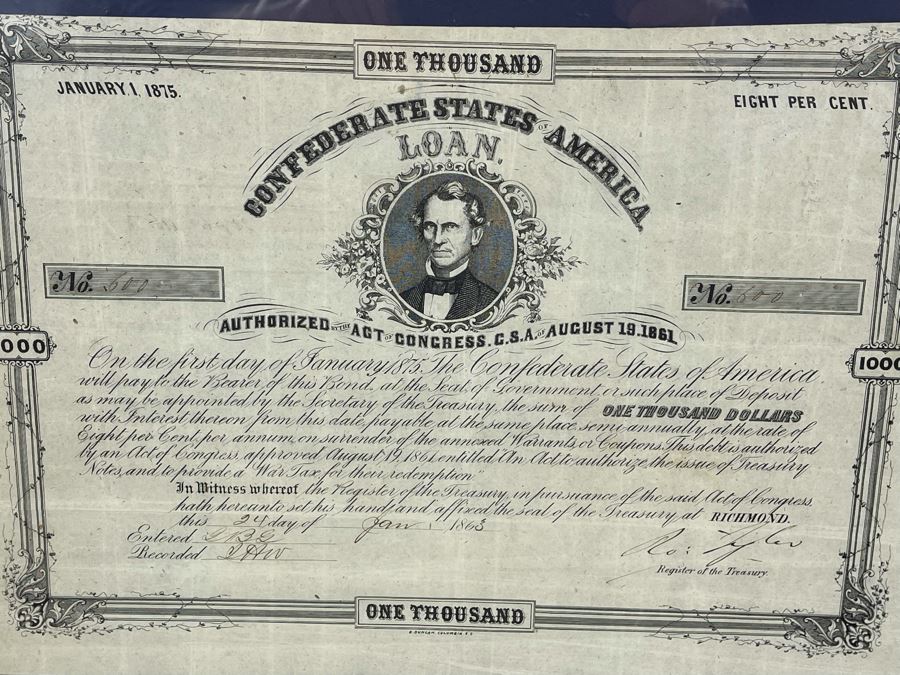 ONE THOUSAND
JANUARY 1, 1875.
EIGHT PER CENT.
CONFEDERATE STATES OF AMERICA.
LOAN.
No. 600
No. 600
AUTHORIZED BY THE ACT OF CONGRESS, C.S.A. OF AUGUST 19. 1861.
1000
1000
On the first day of January 1875, The Confederate States of America
will pay to the Bearer of this Bond, at the Seat of Government, or such place of Deposit
as may be appointed by the Secretary of the Treasury, the sum of ONE THOUSAND DOLLARS
with Interest thereon from this date, payable at the same place semi-annually, at the rate of
Eight per Cent, per annum, on surrender of the annexed Warrants or Coupons. This debt is authorized
by an Act of Congress, approved August 19, 1861, entitled "An Act to authorize the issue of Treasury
Notes, and to provide a War Tax for their redemption."
In Witness whereof the Register of the Treasury, in pursuance of the said Act of Congress,
hath hereunto set his hand, and affixed the seal of the Treasury, at RICHMOND.
this 24 day of Jan. 1863
Entered
Recorded
Ro: Tyler
Register of the Treasury.
ONE THOUSAND
B. DUNCAN, COLUMBIA, S.C.